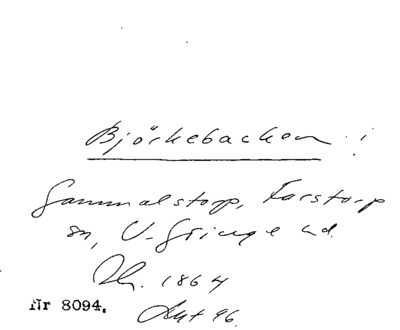 Björkebacken
Gammalstorp, Farstorp
sn, V-Göinge hd.
1864
Nr 8094.